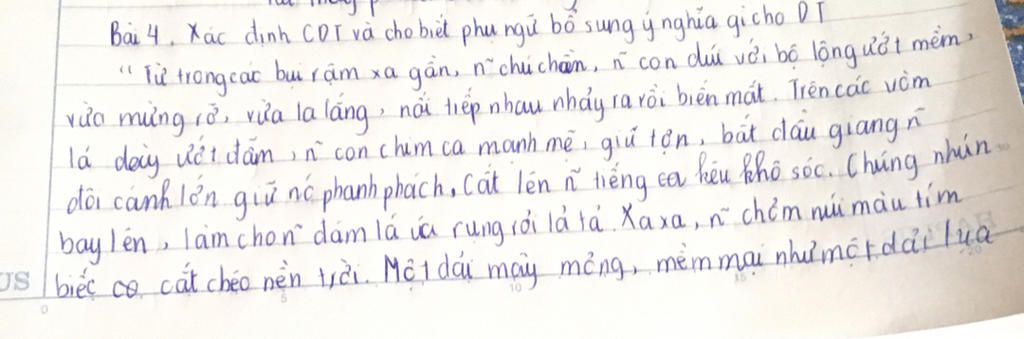 Bài 4. Xác định CDT và cho biết phụ ngữ bổ sung ý nghĩa gì cho DT
"Từ trong các bụi rậm xa gần, n~ chú chồn, n~ con dúi với bộ lông ướt mềm,
vừa mừng rỡ, vừa lo lắng, nối tiếp nhau nhảy ra rồi biến mất. Trên các vòm
lá dày ướt đẫm, n~ con chim ca mạnh mẽ, giữ tợn, bắt đầu giang n~
đôi cánh lớn giũ nó phành phạch, cất lên n~ tiếng ca kêu khô sóc. Chúng nhún
bay lên, làm cho n~ đám lá úa rụng rơi lả tả. Xa xa, n~ chỏm núi màu tím
biếc co cắt chéo nền trời. Một dải mây mỏng, mềm mại như một dải lụa
US
0 5 10 15 20